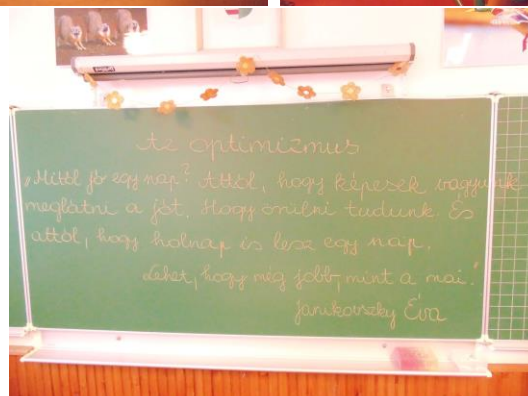 Az optimizmus
„Mitől jó egy nap? Attól, hogy képesek vagyunk
meglátni a jót. Hogy örülni tudunk. És
attól, hogy holnap is lesz egy nap.
Lehet, hogy még jobb, mint a mai."
Janikovszky Éva